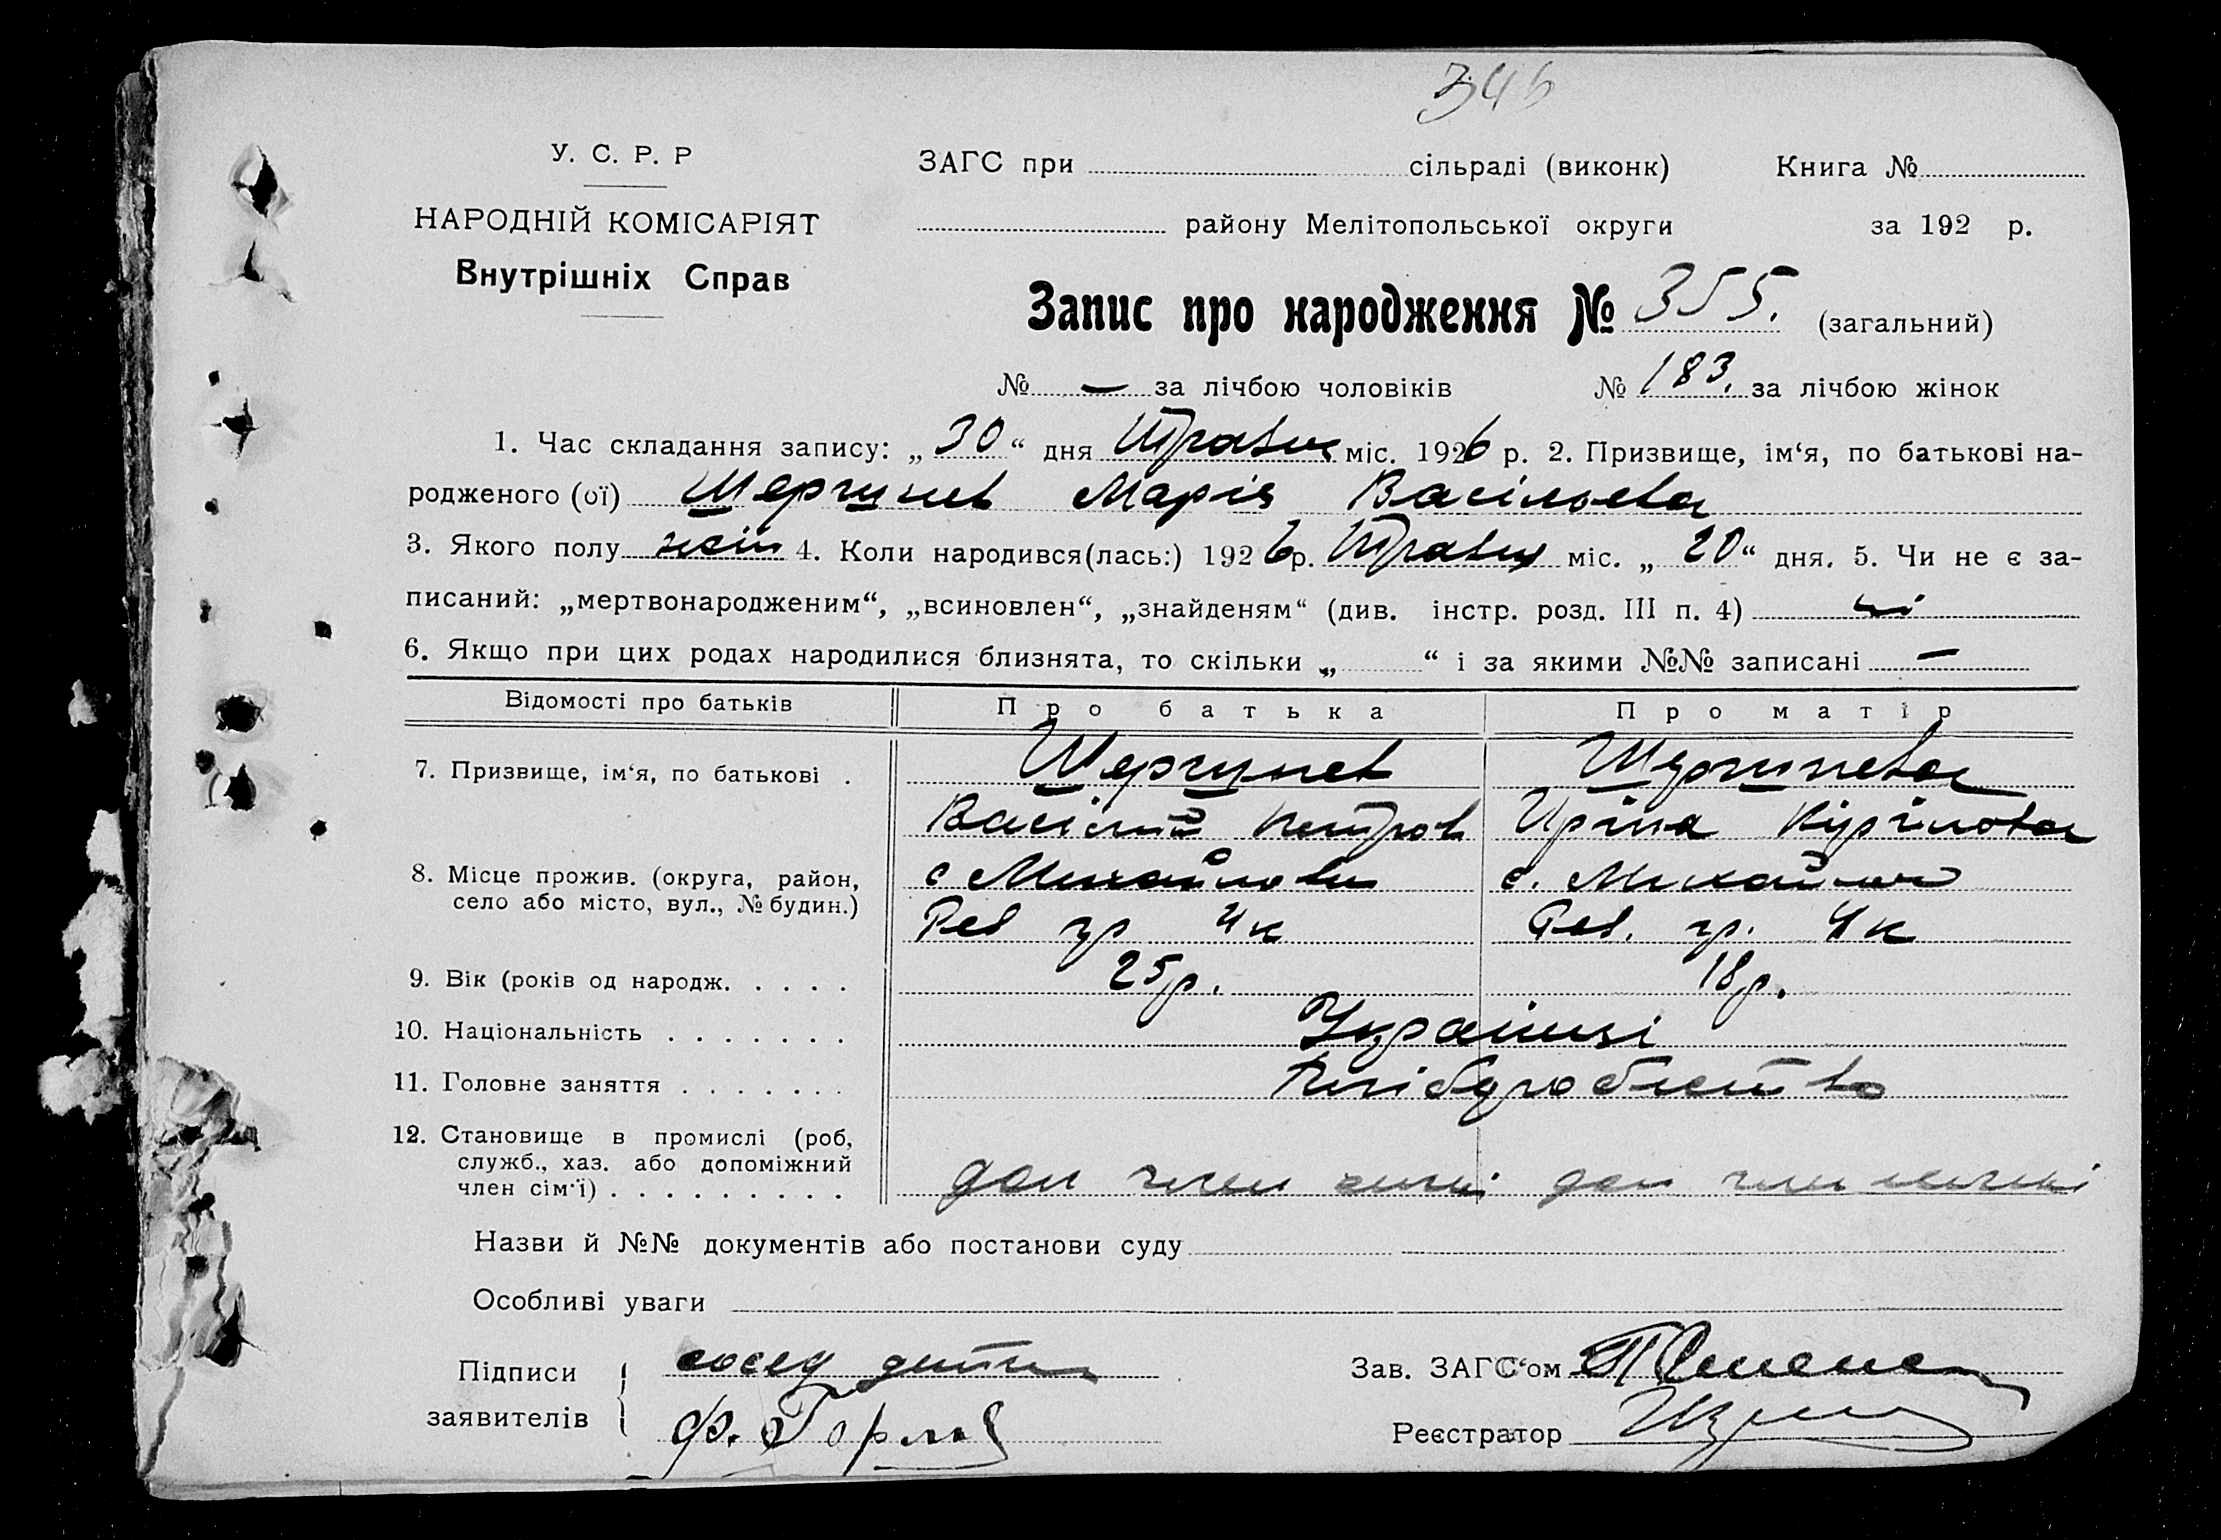 346
У. С. Р. Р
ЗАГС при сільраді (виконк) Книга №
НАРОДНІЙ КОМІСАРІЯТ
району Мелітопольської округи за 192 р.
Внутрішніх Справ
Запис про народження № 355. (загальний)
№ — за лічбою чоловіків № 183. за лічбою жінок
1. Час складання запису: „30“ дня Травня міс. 1926 р. 2. Призвище, ім‘я, по батькові на-
родженого (ої) Марія Васільевна
3. Якого полу жін 4. Коли народився(лась:) 1926 р. Травня міс. „20“ дня. 5. Чи не є за-
писаний: „мертвонародженим“, „всиновлен“, „знайденям“ (див. інстр. розд. III п. 4) ні
6. Якщо при цих родах народилися близнята, то скільки „ “ і за якими №№ записані —
Відомості про батьків Про батька Про матір
7. Призвище, ім‘я, по батькові .
Васілий Петров Кірілова
8. Місце прожив. (округа, район, с Михайловка с. Михайловка
село або місто, вул., № будин.) Рев гр 4к Рев. гр. 4к
9. Вік (років од народж. . . . . 25р. 18р.
10. Національність . . . . . . . Українці
11. Головне заняття . . . . . . . Хліборобство
12. Становище в промислі (роб,
служб., хаз. або допоміжний
член сім‘ї) . . . . . . . . . . доп член доп член
Назви й №№ документів або постанови суду
Особливі уваги
Підписи Зав. ЗАГС‘ом
заявителів Ф.
Реєстратор